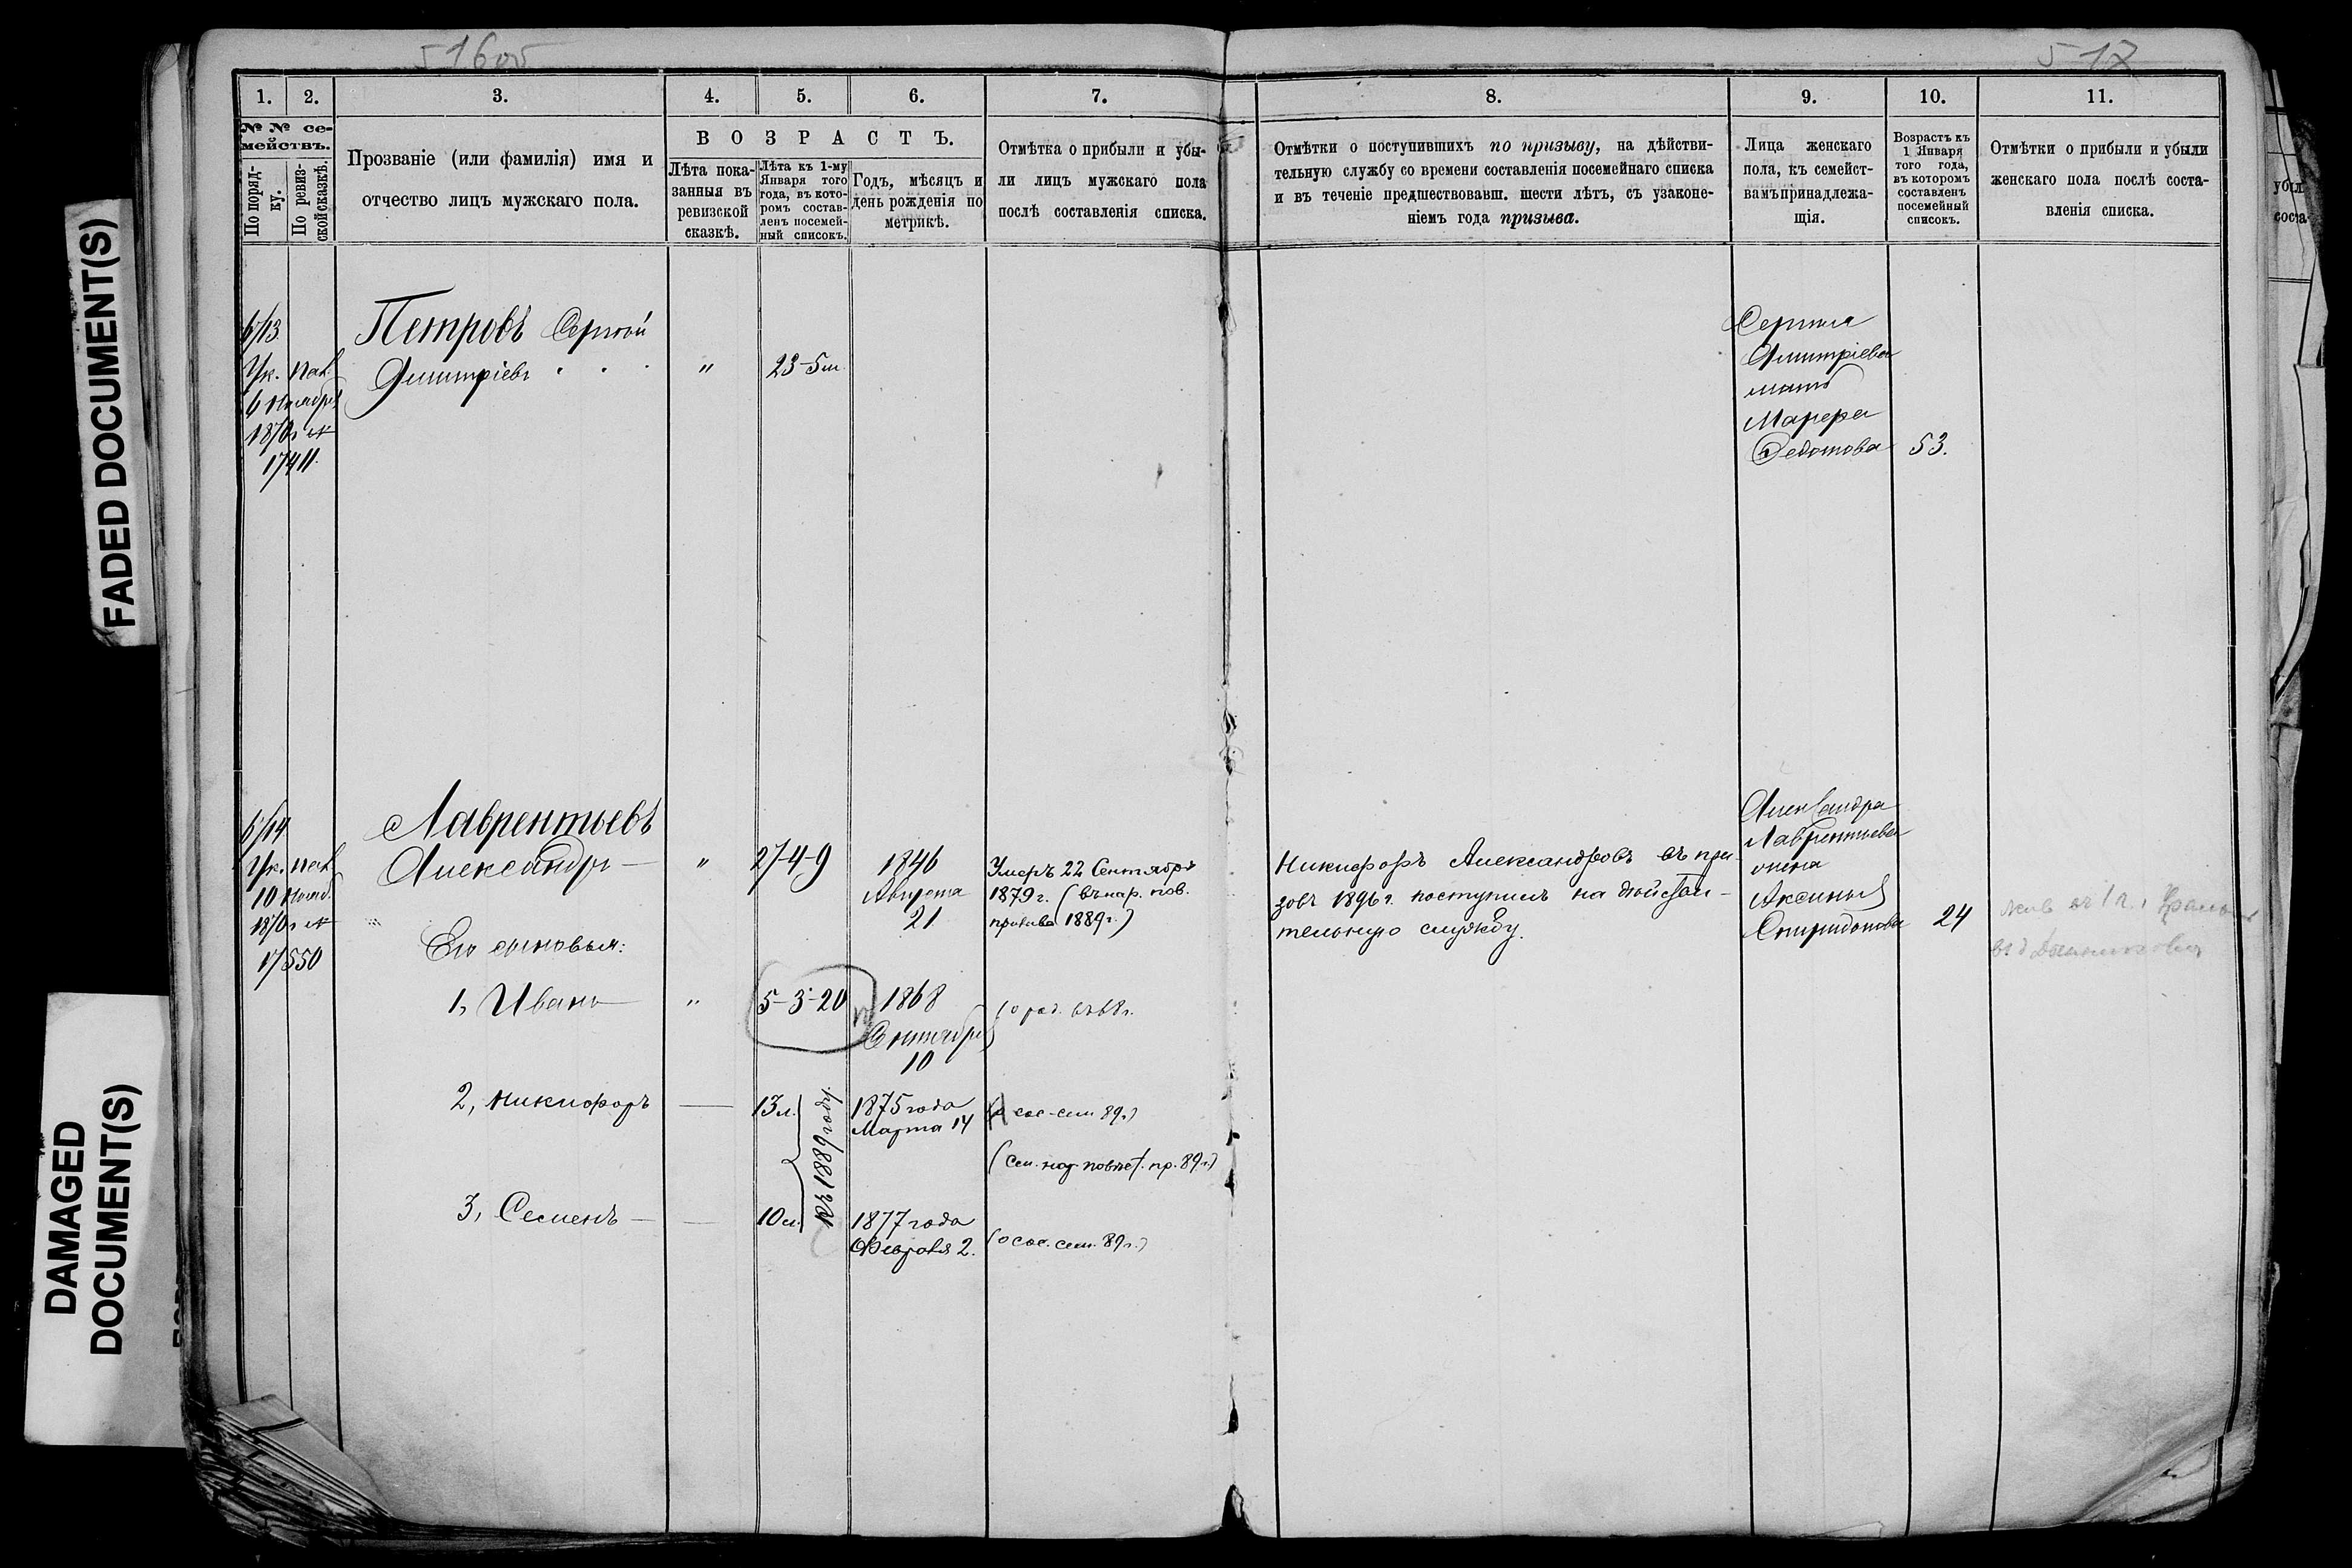 516об
517
1.
2.
3.
4.
5.
6.
7.
8.
9.
10.
11.
№ № се-
мействъ.
По поряд-
ку.
По ревиз-
ской сказкѣ.
Прозваніе (или фамилія) имя и
отчество лицъ мужскаго пола.
ВОЗРАСТЪ.
Лѣта пока-
занныя въ
ревизской
сказкѣ.
Лѣта къ 1-му
Января того
года, въ кото-
ромъ состав-
ленъ посемей-
ный списокъ.
Годъ, мѣсяцъ и
день рожденія по
метрикѣ.
Отмѣтка о прибыли и убы-
ли лицъ мужскаго пола
послѣ составленія списка.
Отмѣтки о поступившихъ по призыву, на дѣйстви-
тельную службу со времени составленія посемейнаго списка
и въ теченіе предшествовавш. шести лѣтъ, съ узаконе-
ніемъ года призыва.
Лица женскаго
пола, къ семейст-
вамъ принадлежа-
щія.
Возрастъ къ
1 Января
того года,
въ которомъ
составленъ
посемейный
списокъ.
Отмѣтки о прибыли и убыли
женскаго пола послѣ соста-
вленія списка.
убыл
соста
Петровъ Сергѣй
Дмитріевъ
6/13.
Ук. Пал.
6 Ноября
1870 г №
17411.
"
23-5 м.
Сергѣя
Дмитріева
мать
Марѳа
Ѳедотова
53.
6/14
Ук. Пал.
10 Нояб.
1870 г №
17550
Лаврентьевъ
Александръ —
"
27-4-9
1846
Августа
21
Умеръ 22 Сентября
1879 г. (въ нар. пов.
призыва 1889 г.)
Никифоръ Александровъ въ при-
зовъ 1896 г. поступилъ на дѣйстви-
тельную службу.
Александра
Лаврентьева
жена
Аксинья
Спиридонова
24
Его сыновья:
1, Иванъ
"
5-3-20
1868
Сентября
10
2, Никифоръ
—
13 л.
къ 1889 году.
1875 года
Марта 14
(о сос. сем 89 г.)
(Сем. нар. повѣст. пр. 89 г.)
3, Семенъ —
—
10 л.
1877 года
Февраля 2.
(о сос. сем. 89 г.)
FADED DOCUMENT(S)
DAMAGED
DOCUMENT(S)